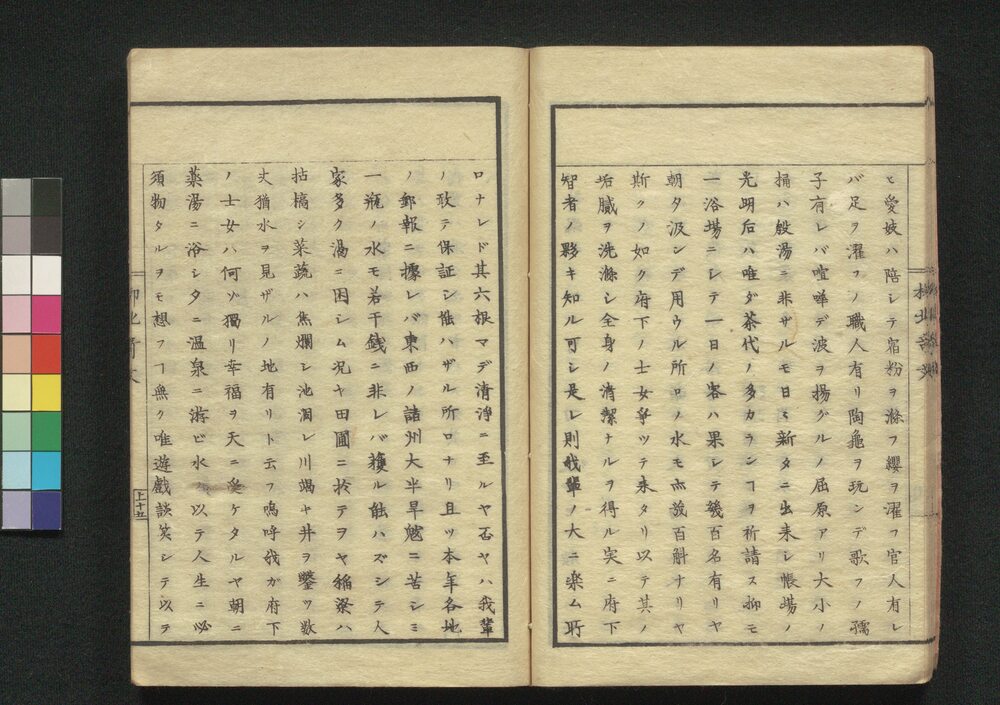 ヒ愛妓ハ陪シテ宿粉ヲ滌フ纓ヲ濯フ官人有レ
バ足ヲ濯フノ職人有リ陶亀ヲ玩ンデ歌フノ孺
子有レバ喧嘩デ波ヲ揚グルノ屈原アリ大小ノ
桶ハ般湯ニ非ザルモ日ミ新タニ出来シ帳場ノ
光明后ハ唯ダ茶代ノ多カランヿヲ祈請ス抑モ
一浴場ニシテ一日ノ客ハ果シテ幾百名有リヤ
朝タ汲ンデ用ウル所ロノ水モ亦幾百斛ナリヤ
斯クノ如ク府下ノ士女争ツテ来タリ以テ其ノ
垢膩ヲ洗滌シ全身ノ清潔ナルヲ得ル実ニ府下
智者ノ夥キ知ル可シ是レ則我輩ノ大ニ楽ム所
ロナレド其六根マデ清浄ニ至ルヤ否ヤハ我輩
ノ敢テ保証シ能ハザル所ロナリ且ツ本年各地
ノ郵報ニ據レバ東西ノ諸州大半旱魃ニ苦シミ
一瓶ノ水モ若干銭ニ非レバ獲ル能ハズシテ人
家多ク渇ニ困シム况ヤ田圃ニ於テヲヤ稲粱ハ
枯槁シ菜蔬ハ焦爛シ池涸レ川竭ヤ井ヲ鑿ツ数
丈猶水ヲ見ザルノ地有リト云フ嗚呼我ガ府下
ノ士女ハ何ゾ獨リ幸福ヲ天ニ受ケタルヤ朝ニ
薬湯ニ浴シタニ温泉ニ游ビ水ノ以テ人生ニ必
須物タルヲモ想フヿ無ク唯遊戯談笑シテ以テ
上十五